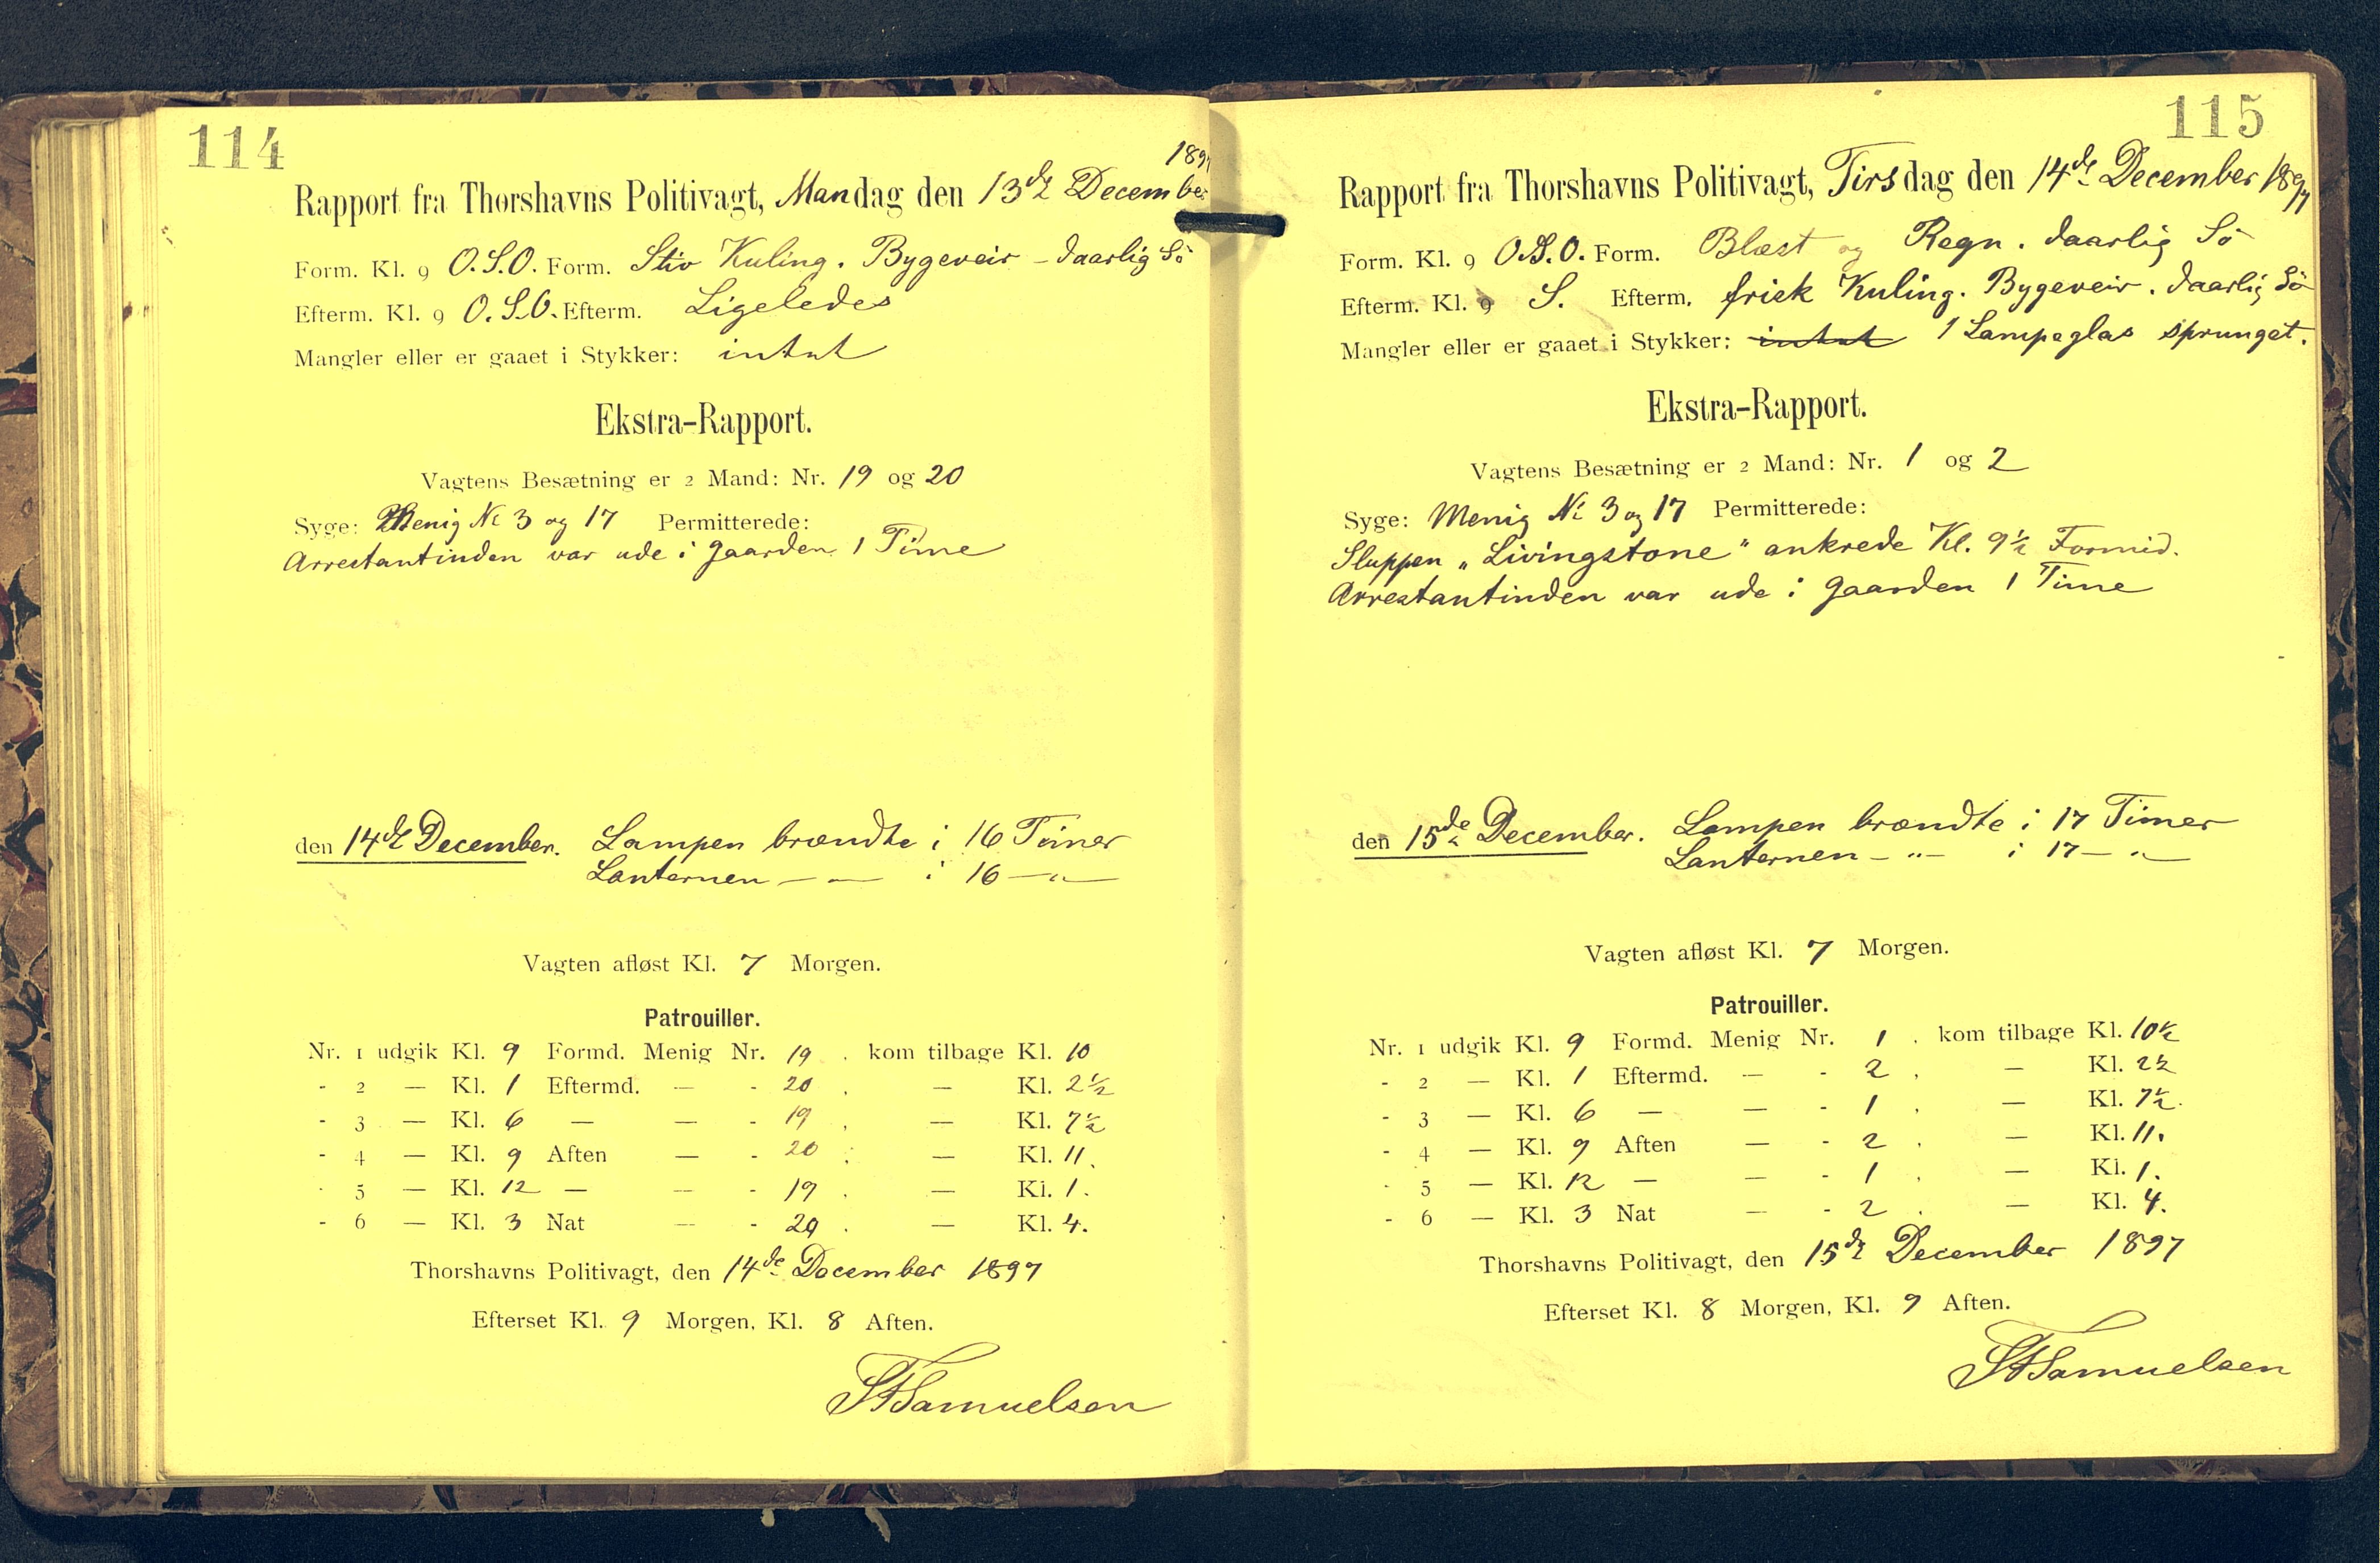 114
1897
Rapport fra Thorshavns Politivagt, Mandag den 13de December
Form. Kl. 9 O.S.O. Form. Stiv Kuling. Bygeveir - daarlig Sö
Efterm. Kl. 9 O.S.O. Efterm. Ligeledes
Mangler eller er gaaet i Stykker: intet
Ekstra-Rapport.
Vagtens Besætning er 2 Mand: Nr. 19 og 20
Syge: Menig No 3 og 17 Permitterede:
Arrestantinden var ude i Gaarden 1 Time
den 14de December. Lampen brændte i 16 Timer
Lanternen — — i 16 — " —
Vagten afløst Kl. 7 Morgen.
Patrouiller.
Nr. 1 udgik Kl. 9 Formd. Menig Nr. 19 . kom tilbage Kl. 10
- 2 — Kl. 1 Eftermd. — - 20 . — Kl. 2 1/2
- 3 — Kl. 6 — — - 19 . — Kl. 7 1/2
- 4 — Kl. 9 Aften — - 20 . — Kl. 11.
- 5 — Kl. 12 — — - 19 . — Kl. 1.
- 6 — Kl. 3 Nat — - 20 . — Kl. 4.
Thorshavns Politivagt, den 14de December 1897
Efterset Kl. 9 Morgen, Kl. 8 Aften.
Samuelsen
115
Rapport fra Thorshavns Politivagt, Tirsdag den 14de December 1897
Form. Kl. 9 O.S.O. Form. Blæst og Regn. daarlig Sö
Efterm. Kl. 9 S. Efterm. frisk Kuling. Bygeveir. daarlig Sö
Mangler eller er gaaet i Stykker: intet 1 Lampeglas sprunget.
Ekstra-Rapport.
Vagtens Besætning er 2 Mand: Nr. 1 og 2
Syge: Menig No 3 og 17 Permitterede:
Sluppen „Livingstone" ankrede Kl. 9 1/2 Formid.
Arrestantinden var ude i Gaarden 1 Time
den 15de December. Lampen brændte i 17 Timer
Lanternen - " - i 17 — " —
Vagten afløst Kl. 7 Morgen.
Patrouiller.
Nr. 1 udgik Kl. 9 Formd. Menig Nr. 1 . kom tilbage Kl. 10 1/2
- 2 — Kl. 1 Eftermd. — - 2 . — Kl. 2 1/2
- 3 — Kl. 6 — — - 1 . — Kl. 7 1/2.
- 4 — Kl. 9 Aften — - 2 . — Kl. 11.
- 5 — Kl. 12 — — - 1 . — Kl. 1.
- 6 — Kl. 3 Nat — - 2 . — Kl. 4.
Thorshavns Politivagt, den 15de December 1897
Efterset Kl. 8 Morgen, Kl. 9 Aften.
Samuelsen